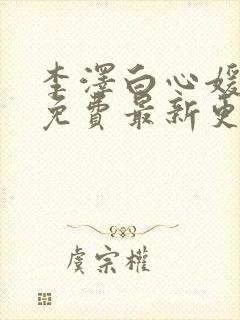 李泽白心媛
免費最新更
虞宗權